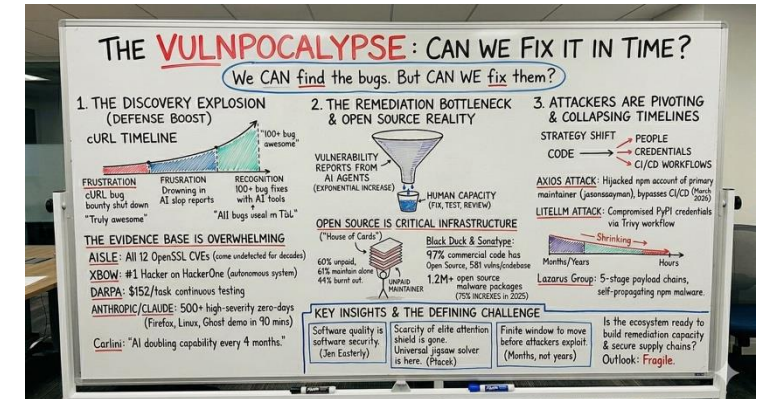 THE VULNPOCALYPSE: CAN WE FIX IT IN TIME?
We CAN find the bugs. But CAN WE fix them?
1. THE DISCOVERY EXPLOSION
(DEFENSE BOOST)
cURL TIMELINE
"100+ bug
awesome"
FRUSTRATION
cURL bug
bounty shut down
"Truly awesome"
FRUSRATION
Drowning in
AI slop reports
RECOGNITION
100+ bug fixes
with AI tools
"All bugs useal m TbL"
THE EVIDENCE BASE IS OVERWHELMING
AISLE: All 12 OpenSSL CVEs (come undetected for decades)
XBOW: #1 Hacker on HackerOne (autonomous system)
DARPA: $152/task continuous testing
ANTHROPIC/CLAUDE: 500+ high-severity zero-days
(Firefox, Linux, Ghost demo in 90 mins)
Carlini: "AI doubling capability every 4 months."
2. THE REMEDIATION BOTTLENECK
& OPEN SOURCE REALITY
VULNERABILITY
REPORTS FROM
AI AGENTS
(EXPONENTIAL INCREASE)
HUMAN CAPACITY
(FIX, TEST, REVIEW)
OPEN SOURCE IS CRITICAL INFRASTRUCTURE
("House of Cards")
60% unpaid,
61% maintain alone
44% burnt out.
UNPAID
MAINTAINER
Black Duck & Sonatype:
97% commercial code has
Open Source, 581 vulns/codebase
1.2M+ open source
malware packages
(75% INCREASES in 2025)
3. ATTACKERS ARE PIVOTING
& COLLAPSING TIMELINES
STRATEGY SHIFT
CODE
PEOPLE
CREDENTIALS
CI/CD WORKFLOWS
AXIOS ATTACK: Hijacked npm account of primary
maintainer (jasonssayman), bypasses CI/CD (March
2026)
LITELLM ATTACK: Compromised PyPI credentials
via Trivy workflow
Shrinking
Months/Years
Hours
Lazarus Group: 5-stage payload chains,
self-propagating npm malware.
KEY INSIGHTS & THE DEFINING CHALLENGE
Software quality is
software security.
(Jen Easterly)
Scarcity of elite attention
shield is gone.
Universal jigsaw solver
is here. (Ptacek)
Finite window to move
before attackers exploit.
(Months, not years)
Is the ecosystem ready to
build remediation capacity
& secure supply chains?
Outlook: Fragile.